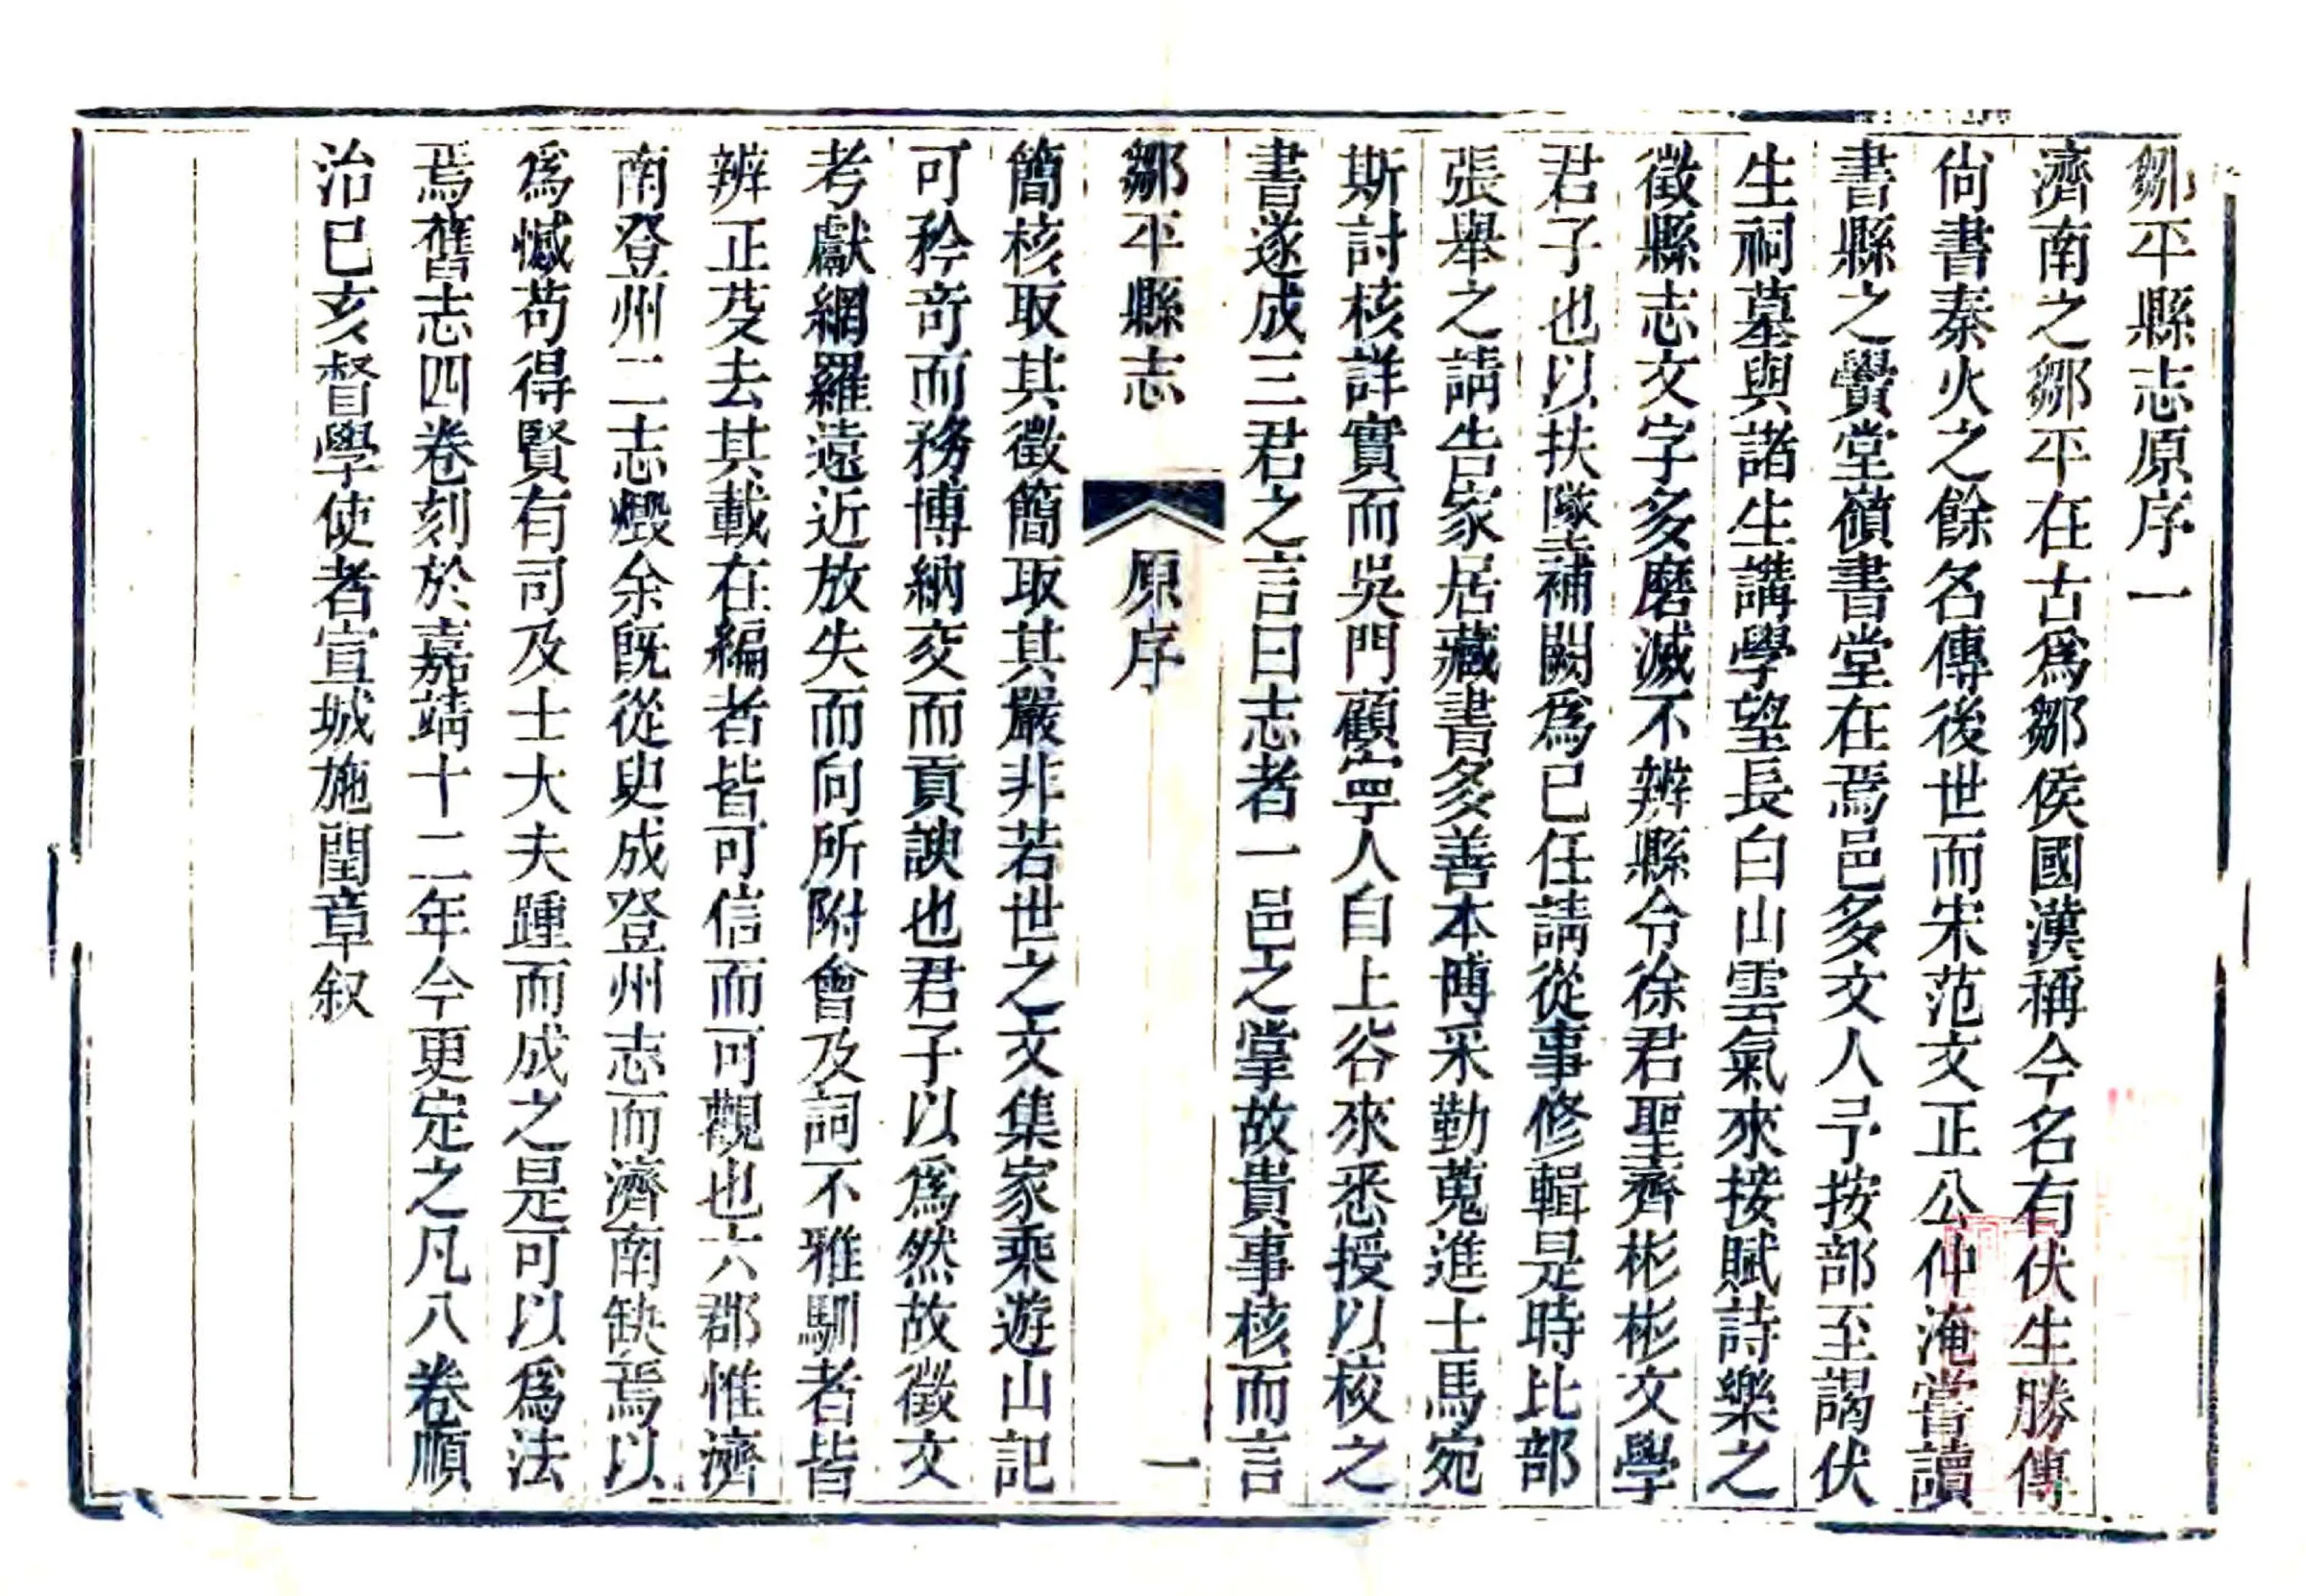 鄒平縣志原序一
濟南之鄒平在古爲鄒侯國漢稱今名有伏生勝傳
尙書秦火之餘名傳後世而宋范文正公仲淹嘗讀
書縣之黌堂嶺書堂在焉邑多文人予按部至謁伏
生祠墓與諸生講學望長白山雲氣來接賦詩樂之
徵縣志文字多磨滅不辨縣令徐君聖齊彬彬文學
君子也以扶墜補闕爲已任請從事修輯是時比部
張舉之請告家居藏書多善本博采勤蒐進士馬宛
斯討核詳實而吳門顧寧人自上谷來悉授以校之
書遂成三君之言曰志者一邑之掌故貴事核而言
鄒平縣志 原序 一
簡核取其徵簡取其嚴非若世之文集家乘遊山記
可矜奇而務博納交而貢諛也君子以爲然故徵文
考獻網羅遠近放失而向所附會及詞不雅馴者皆
辨正芟去其載在編者皆可信而可觀也六郡惟濟
南登州二志燬余旣從臾成登州志而濟南缺焉以
爲憾苟得賢有司及士大夫踵而成之是可以爲法
焉舊志四卷刻於嘉靖十二年今更定之凡八卷順
治巳亥督學使者宣城施閏章叙